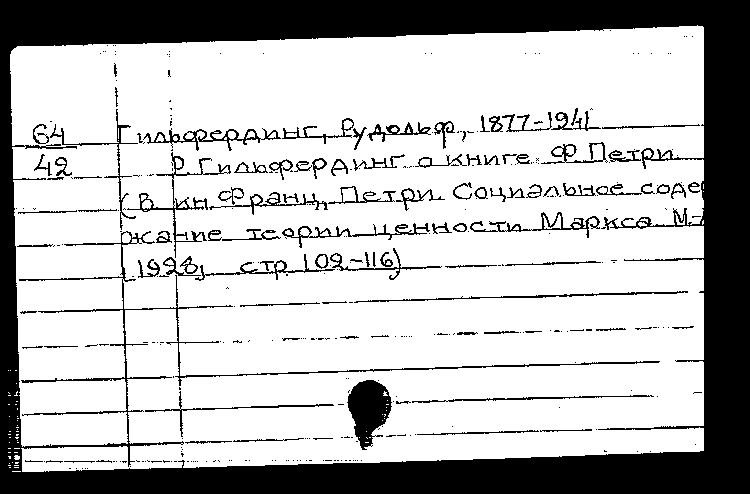 64 Гильфердинг, Рудольф, 1877-1941
42 Р. Гильфердинг о книге Ф. Петри.
(В кн. Франц, Петри. Социальное содер
жание теории ценности Маркса М.-
1928, стр 109-116)